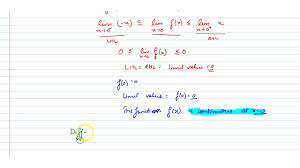 lim (-x) ≤ lim f(x) ≤ lim x
x→0⁻ x→0 x→0⁺
LHL RHL
0 ≤ lim f(x) ≤ 0
x→0
LHL = RHL = Limit value = 0
f(0) = 0
Limit value = f(0) = 0
The function f(x) is continuous at x=0
Diff